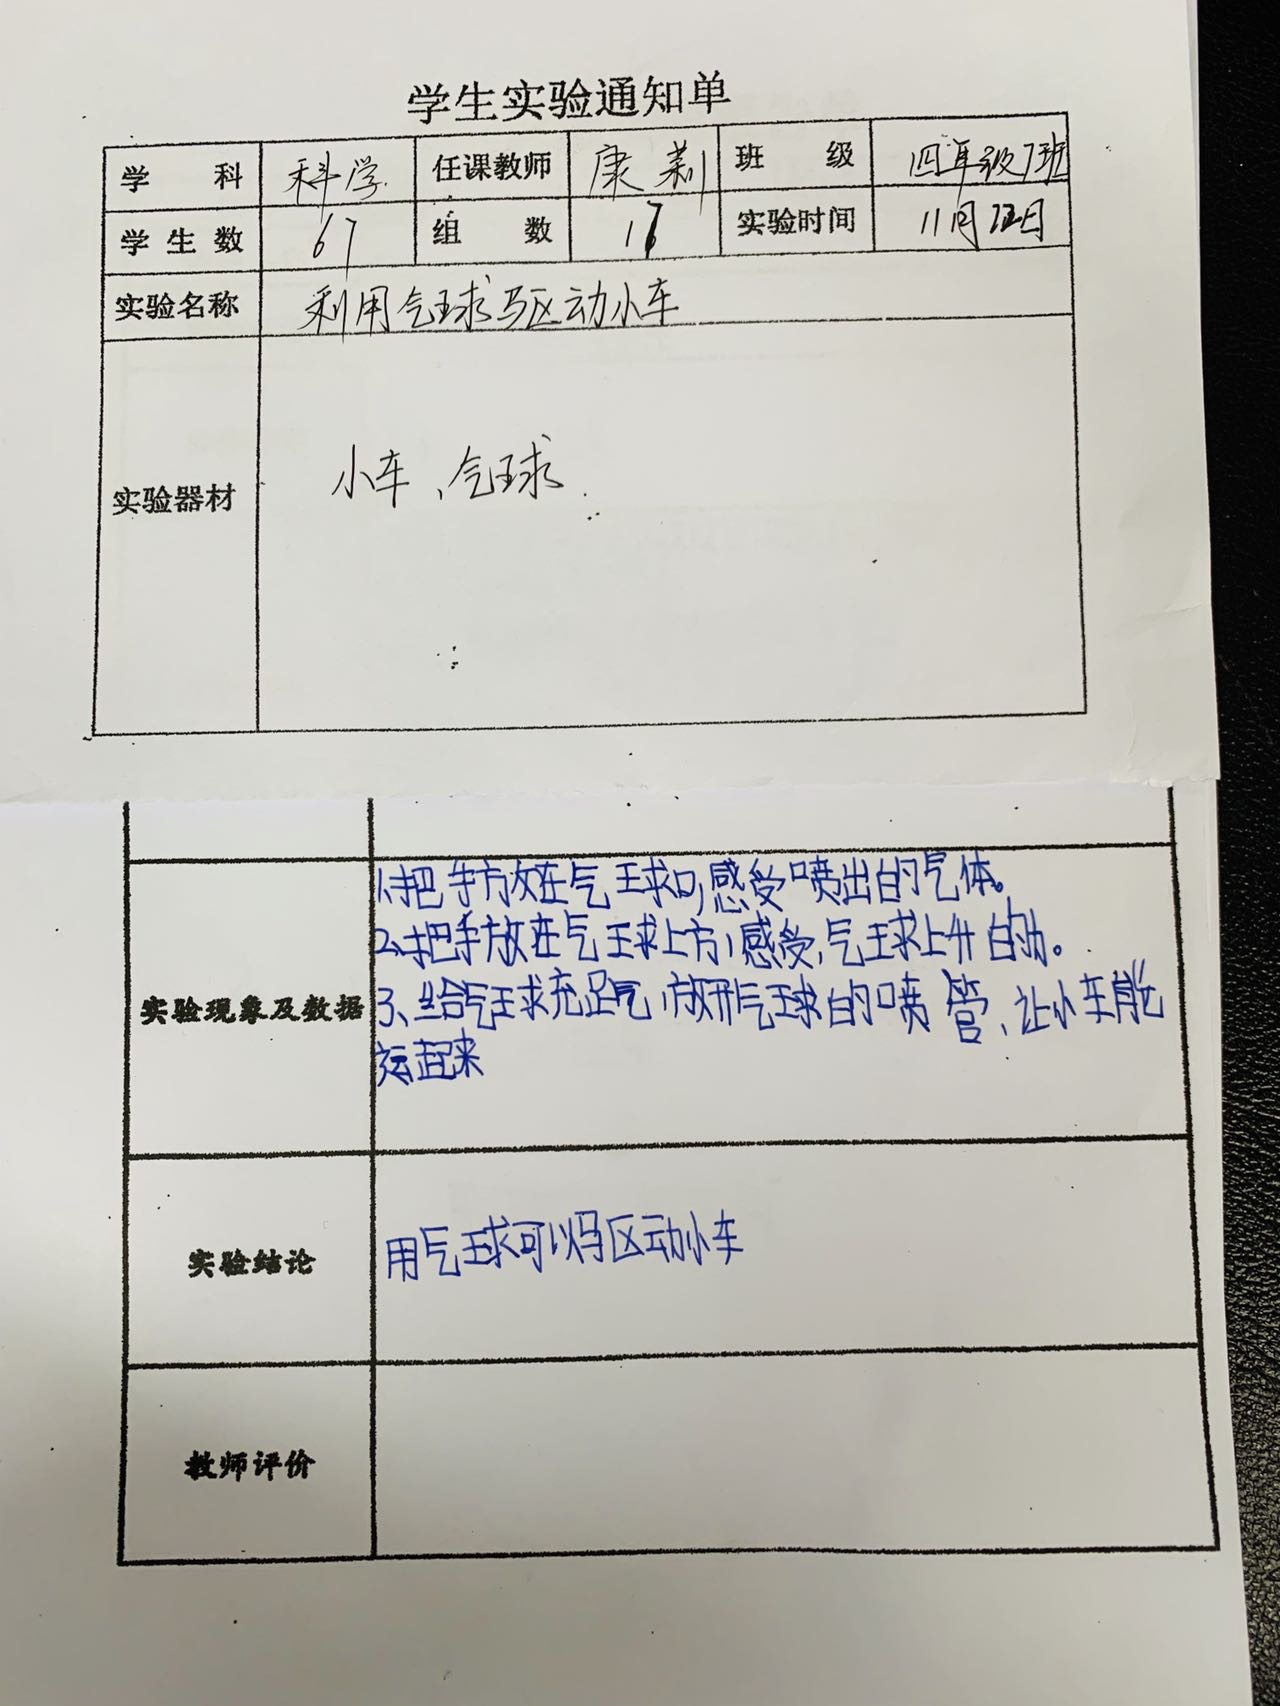 学生实验通知单
学 科 科学 任课教师 康莉 班 级 四年级7班
学生数 67 组 数 实验时间 11月
实验名称 利用气球驱动小车
实验器材 小车、气球
1、把手放在气球口,感受喷出的气体。
2、把手放在气球上方,感受,气球上升的力。
实验现象及数据 3、给气球充足气,放开气球的喷管、让小车能
运起来
实验结论 用气球可以驱动小车
教师评价